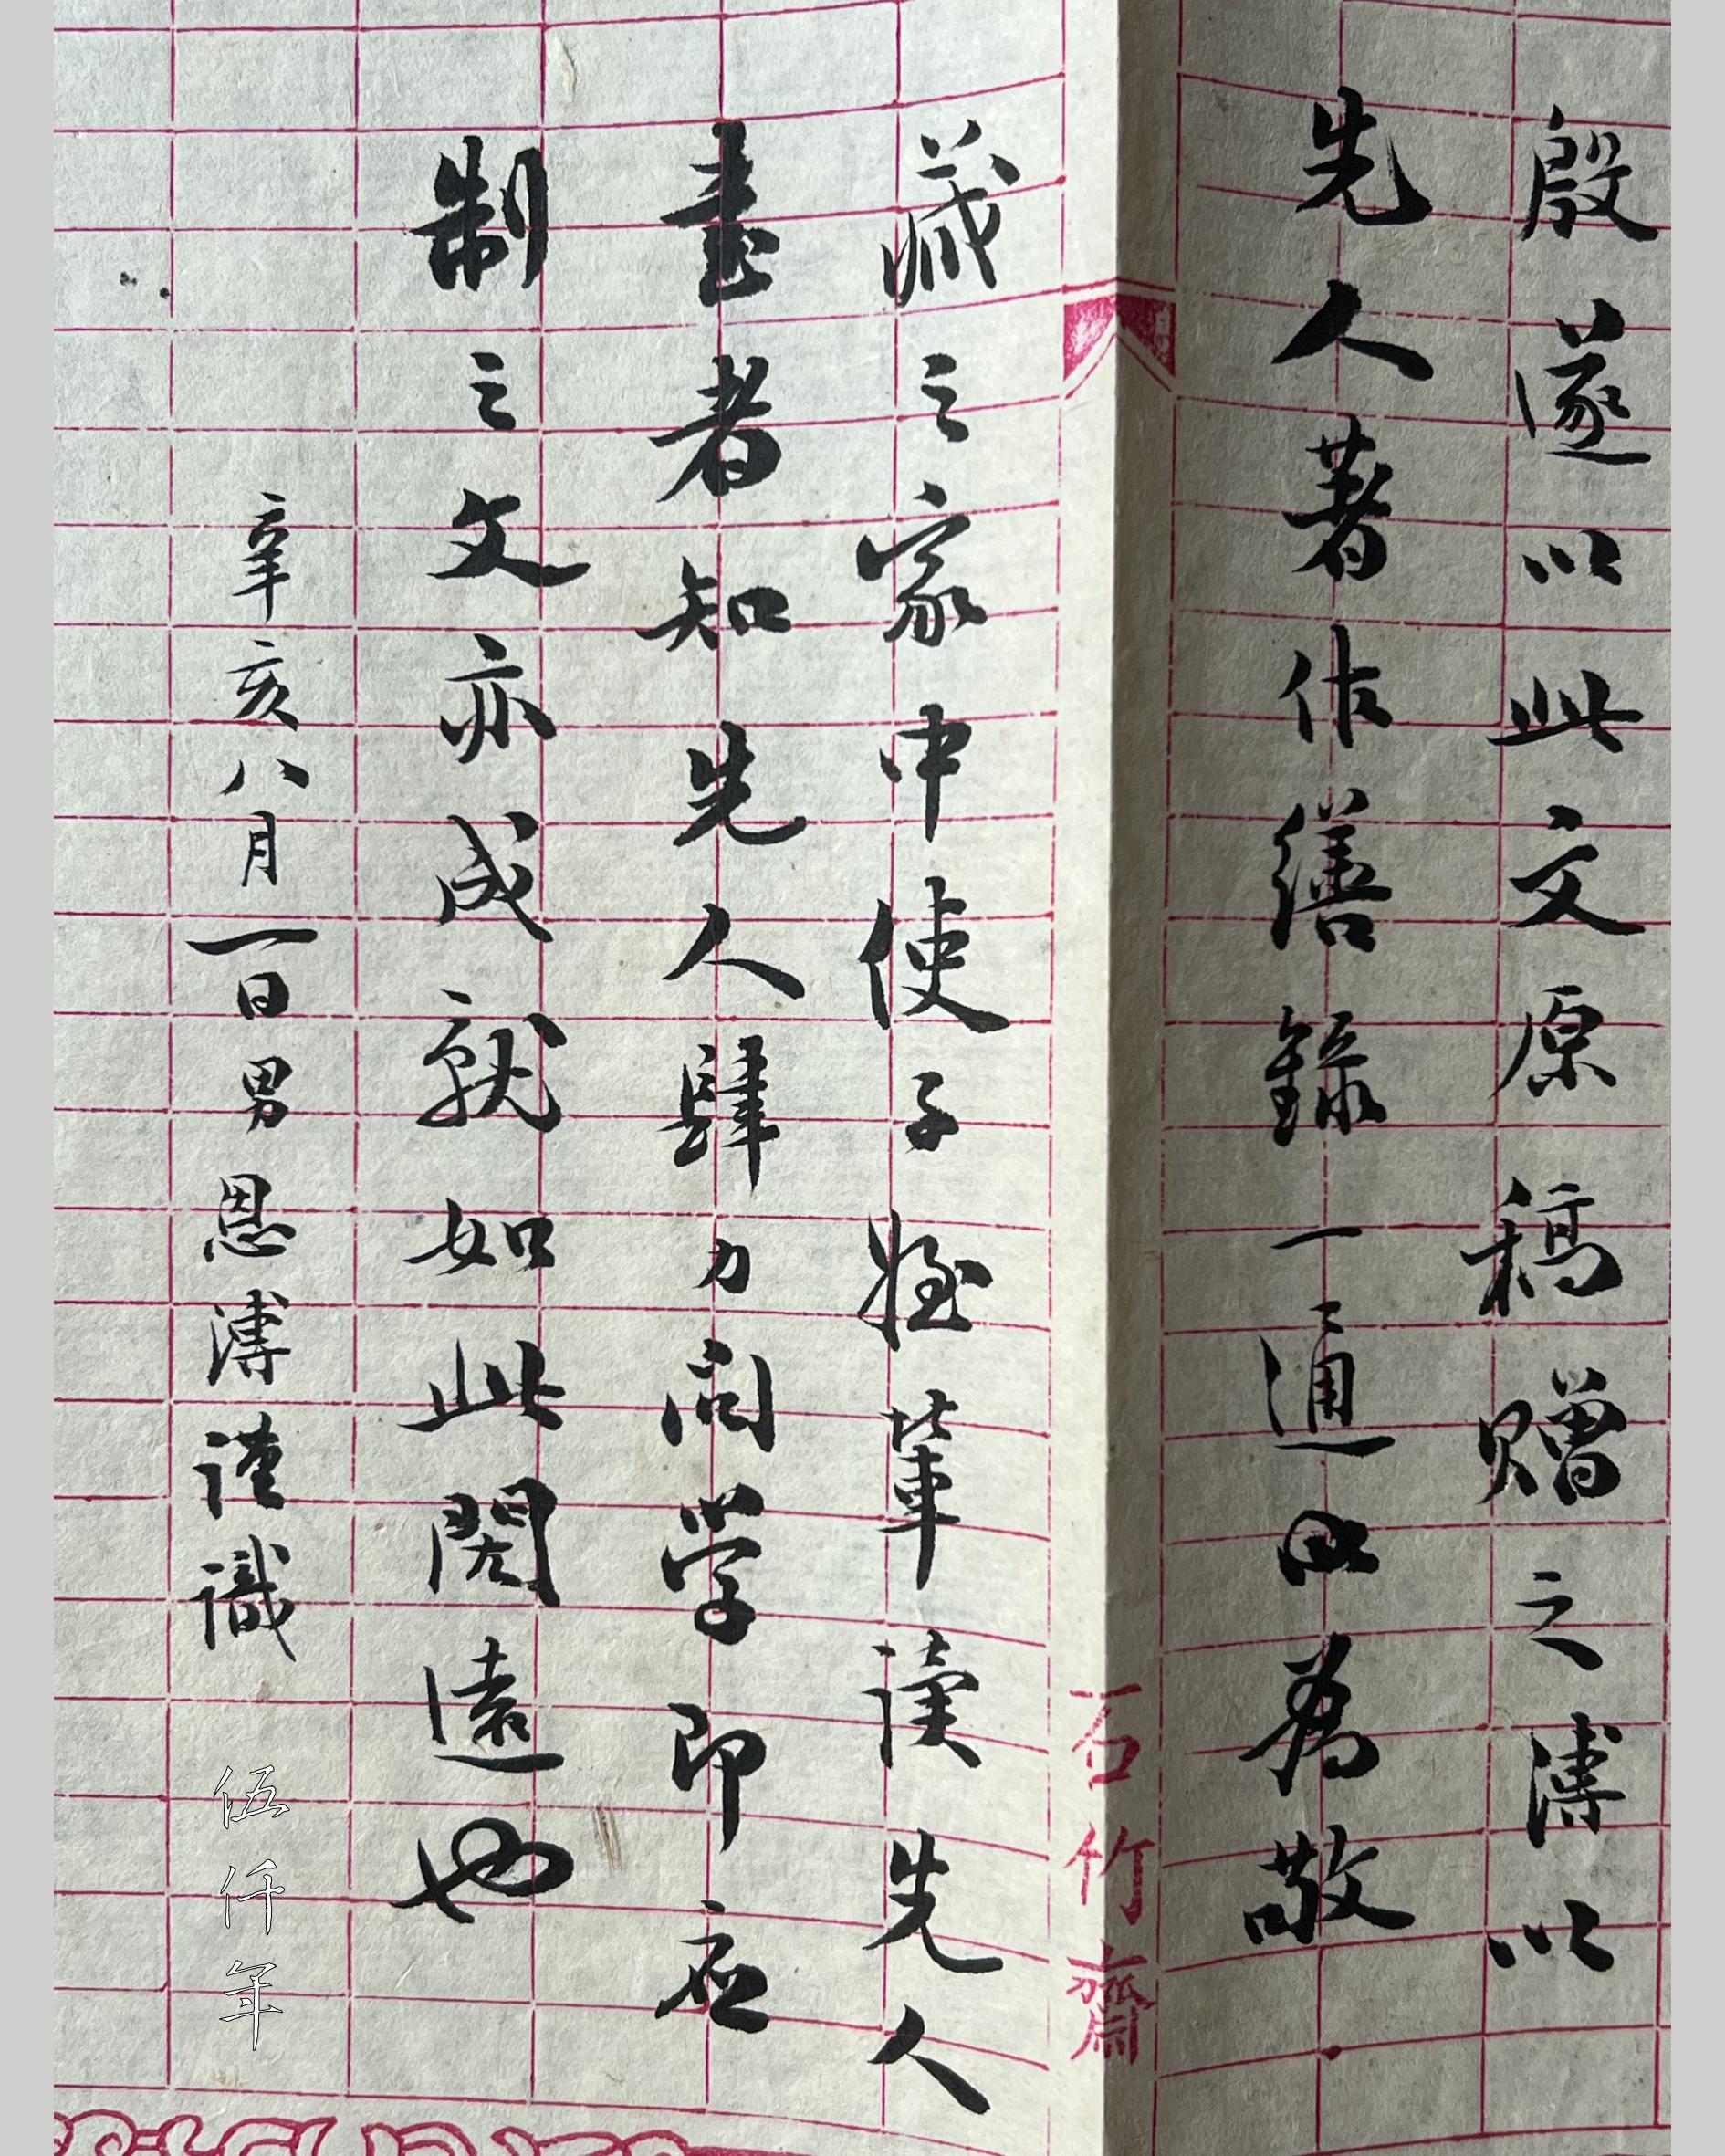 殷遂以此文原稿贈之溥以
先人著作繕録一通因為敬
石竹齋
藏之家中使子姪輩讀先人
書者知先人肆力问学即应
制之文亦成就如此閎遠也
辛亥八月一日男恩溥謹識
伍仟年